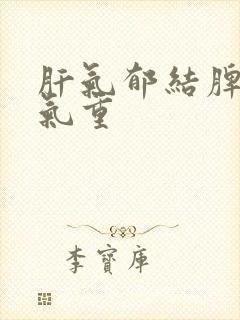 肝氣郁結脾
氣重
李寶庫